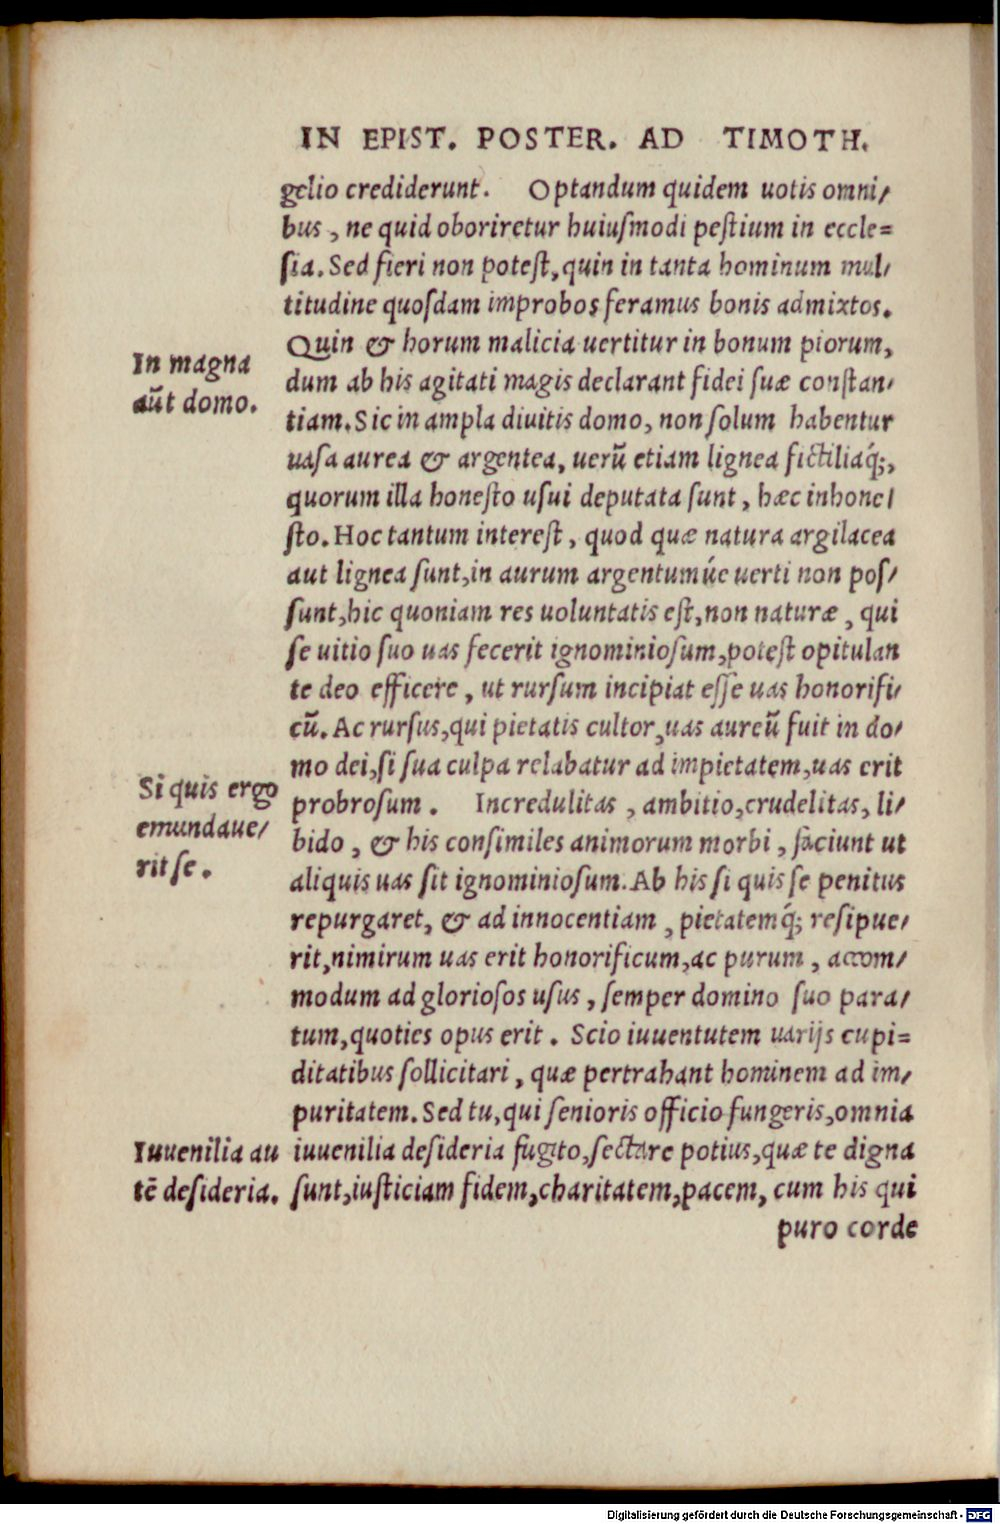 IN EPIST. POSTER. AD TIMOTH.
gelio crediderunt. Optandum quidem uotis omni/
bus, ne quid oboriretur huiuſmodi peſtium in eccle=
ſia. Sed fieri non poteſt, quin in tanta hominum mul/
titudine quoſdam improbos feramus bonis admixtos.
Quin & horum malicia uertitur in bonum piorum,
In magna
dum ab his agitati magis declarant fidei ſuæ conſtan/
aūt domo.
tiam. Sic in ampla diuitis domo, non ſolum habentur
uaſa aurea & argentea, uerū etiam lignea fictiliaq́;,
quorum illa honeſto uſui deputata ſunt, hæc inhone/
ſto. Hoc tantum intereſt, quod quæ natura argilacea
aut lignea ſunt, in aurum argentumúe uerti non poſ/
ſunt, hic quoniam res uoluntatis eſt, non naturæ, qui
ſe uitio ſuo uas fecerit ignominioſum, poteſt opitulan
te deo efficere, ut rurſum incipiat eſſe uas honorifi/
cū. Ac rurſus, qui pietatis cultor, uas aureū fuit in do/
mo dei, ſi ſua culpa relabatur ad impietatem, uas erit
Si quis ergo
probroſum. Incredulitas, ambitio, crudelitas, li/
emundaue/
bido, & his conſimiles animorum morbi, faciunt ut
rit ſe.
aliquis uas ſit ignominioſum. Ab his ſi quis ſe penitus
repurgaret, & ad innocentiam, pietatemq́; reſipue/
rit, nimirum uas erit honorificum, ac purum, accom/
modum ad glorioſos uſus, ſemper domino ſuo para/
tum, quoties opus erit. Scio iuuentutem uarijs cupi=
ditatibus ſollicitari, quæ pertrahant hominem ad im/
puritatem. Sed tu, qui ſenioris officio fungeris, omnia
Iuuenilia au
iuuenilia deſideria fugito, ſectare potius, quæ te digna
tē deſideria.
ſunt, iuſticiam fidem, charitatem, pacem, cum his qui
puro corde
Digitalisierung gefördert durch die Deutsche Forschungsgemeinschaft - DFG